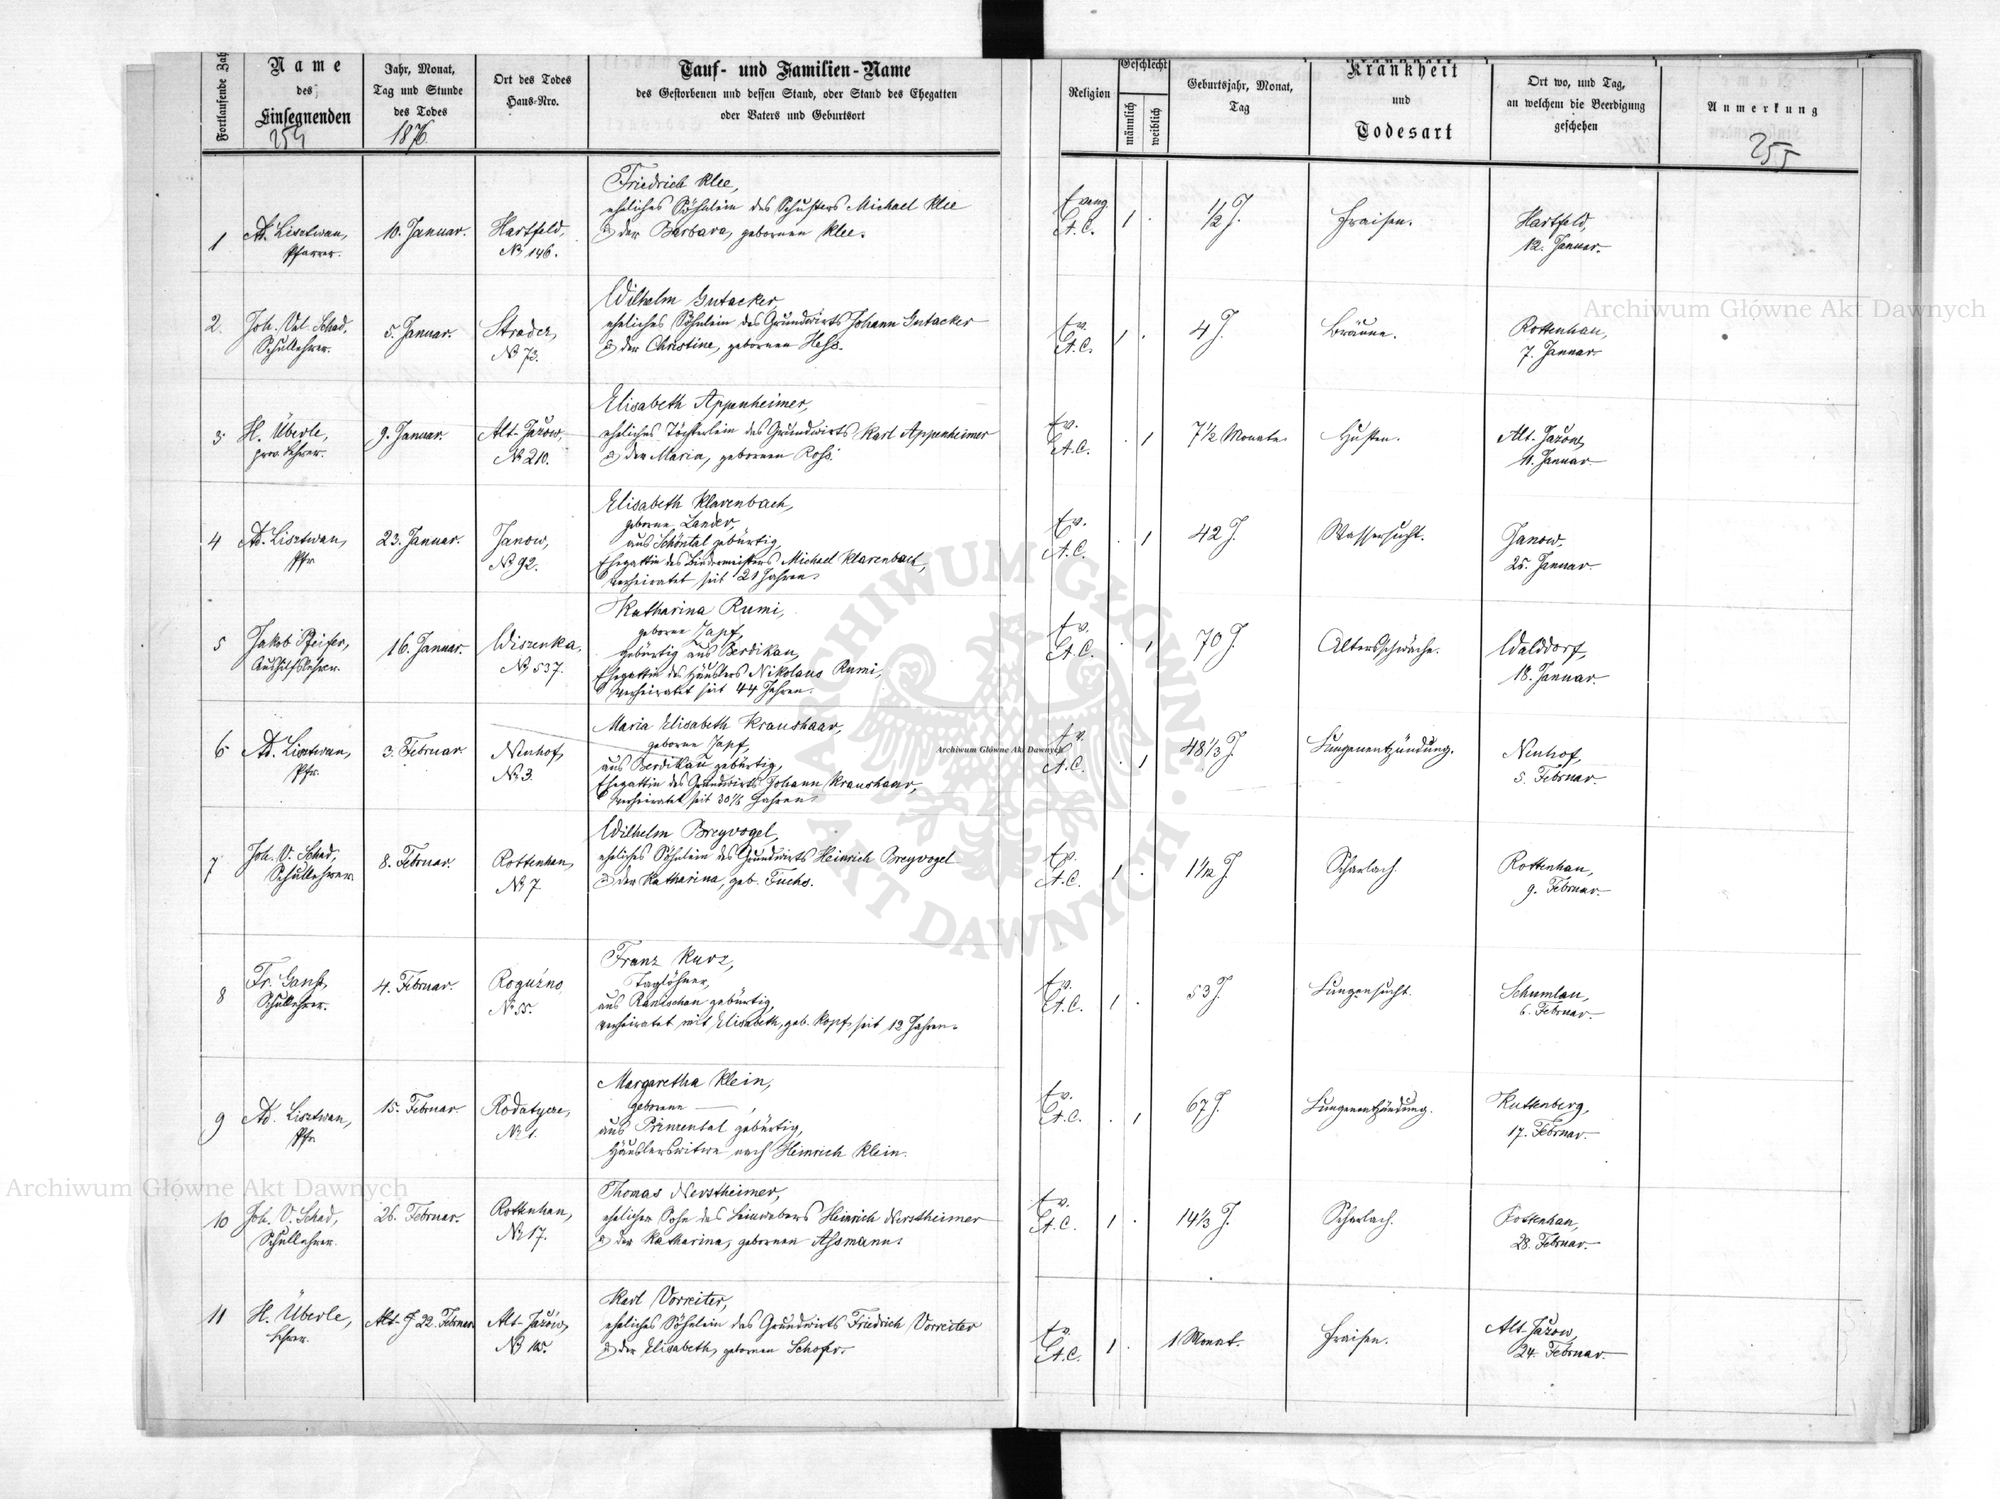 Fortlaufende Zahl
Name
des
Einsegnenden
254
Jahr, Monat,
Tag und Stunde
des Todes
1876.
Ort des Todes
Haus-Nro.
Tauf- und Familien-Name
des Gestorbenen und dessen Stand, oder Stand des Ehegatten
oder Vaters und Geburtsort
Religion
Geschlecht
männlich
weiblich
Geburtsjahr, Monat,
Tag
Krankheit
und
Todesart
Ort wo, und Tag,
an welchem die Beerdigung
geschehen
Anmerkung
255
1
Ad. Lisztwan,
Pfarrer.
10. Januar.
Hartfeld,
N 146.
Friedrich Klee,
eheliches Söhnlein des Schusters Michael Klee
& der Barbara, gebornen Klee.
Evang.
A.C.
1 .
1/2 J.
Fraisen.
Hartfeld,
12. Januar.
2.
Joh. Val. Schad,
Schullehrer.
5. Januar.
Stradez,
N 73.
Wilhelm Gutacker,
eheliches Söhnlein des Grundwirts Johann Gutacker
& der Christine, gebornen Heß.
Ev.
A.C.
1 .
4 J.
Bräune.
Rottenhan,
7. Januar.
3
H. Überle,
prov. Lehrer.
9. Januar.
Alt-Jażow,
N 210.
Elisabeth Appenheimer,
eheliches Töchterlein des Grundwirts Karl Appenheimer
& der Maria, gebornen Roß.
Ev.
A.C.
. 1
7 1/2 Monate.
Husten.
Alt-Jażow,
11. Januar.
4
Ad. Lisztwan,
Pfr.
23. Januar.
Janow,
N 92.
Elisabeth Klarenbach,
geborne Lander,
aus Schöntal gebürtig,
Ehegattin des Bindermeisters Michael Klarenbach,
verheiratet seit 21 Jahren.
Ev.
A.C.
. 1
42 J.
Wassersucht.
Janow.
25. Januar.
5
Jakob Pfeifer,
Aushilfslehrer.
16. Januar.
Wiszenka,
N 537.
Katharina Rumi,
geborne Zapf,
gebürtig aus Berdikau,
Ehegattin des Häuslers Nikolaus Rumi,
verheiratet seit 44 Jahren.
Ev.
A.C.
. 1
70 J.
Altersschwäche.
Walddorf,
18. Januar.
6
Ad. Lisztwan,
Pfr.
3. Februar.
Neuhof,
N 3.
Maria Elisabeth Kraushaar,
geborne Zapf,
aus Berdikau gebürtig,
Ehegattin des Grundwirts Johann Kraushaar,
verheiratet seit 30 1/2 Jahren.
Ev.
A.C.
. 1
48 1/3 J.
Lungenentzündung.
Neuhof,
5. Februar.
7
Joh. V. Schad,
Schullehrer.
8. Februar.
Rottenhan,
N 7
Wilhelm Breyvogel,
eheliches Söhnlein des Grundwirts Heinrich Breyvogel
& der Katharina, geb. Fuchs.
Ev.
A.C.
1 .
1 1/12 J.
Scharlach.
Rottenhan,
9. Februar.
8
Fr. Ganß,
Schullehrer.
4. Februar.
Roguźno
N 55.
Franz Kurz,
Taglöhner,
aus Ranischau gebürtig,
verheiratet mit Elisabeth, geb. Kopf, seit 12 Jahren.
Ev.
A.C.
1 .
53 J.
Lungensucht.
Schumlau,
6. Februar.
9
Ad. Lisztwan,
Pfr.
15. Februar.
Rodatycze,
N 1.
Margaretha Klein,
geborne —,
aus Prinzental gebürtig,
Häuslerswitwe nach Heinrich Klein.
Ev.
A.C.
. 1
67 J.
Lungenentzündung.
Kuttenberg,
17. Februar.
10
Joh. V. Schad,
Schullehrer.
26. Februar.
Rottenhan,
N 17.
Thomas Nerstheimer,
ehelicher Sohn des Leinwebers Heinrich Nerstheimer
& der Katharina, gebornen Aßmann.
Ev.
A.C.
1 .
14 1/3 J.
Scharlach.
Rottenhan,
28. Februar.
11
H. Überle,
Lehrer.
Alt-J 22. Februar.
Alt-Jażow,
N 105.
Karl Vorreiter,
eheliches Söhnlein des Grundwirts Friedrich Vorreiter
& der Elisabeth, gebornen Schofer.
Ev.
A.C.
1 .
1 Monat.
Fraisen.
Alt-Jażow,
24. Februar.
Archiwum Główne Akt Dawnych
Archiwum Główne Akt Dawnych
Archiwum Główne Akt Dawnych
ARCHIWUM GŁÓWNE AKT DAWNYCH